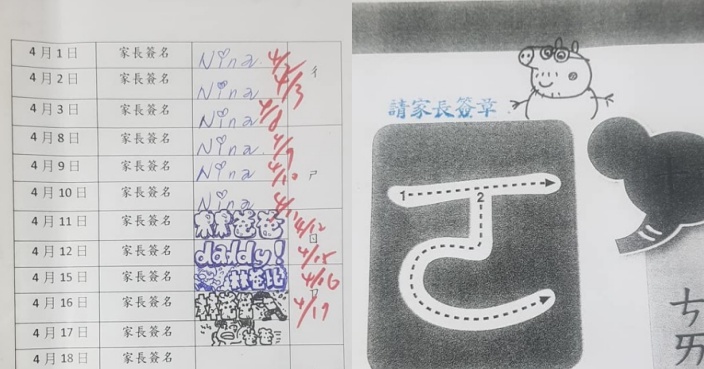 4月1日 家長簽名 Nina 4/2
4月2日 家長簽名 Nina 4/3 ㄔ
4月3日 家長簽名 Nina 4/8
4月8日 家長簽名 Nina 4/9
4月9日 家長簽名 Nina 4/10 ㄕ
4月10日 家長簽名 Nina 4/11
4月11日 家長簽名 林爸爸 4/12
4月12日 家長簽名 daddy! 4/15 ㄖ
4月15日 家長簽名 林老北 4/16
4月16日 家長簽名 4/17 ㄗ
4月17日 家長簽名 爸爸
4月18日 家長簽名
請家長簽章
1 2
ㄘ
ㄞ